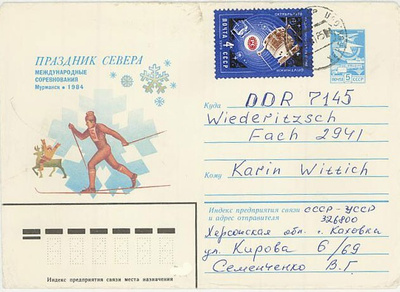 ПРАЗДНИК СЕВЕРА
МЕЖДУНАРОДНЫЕ
СОРЕВНОВАНИЯ
Мурманск • 1984
ПОЧТА СССР
4
5
Куда
DDR 7145
Wiederitzsch
Fach 2941
Кому
Karin Wittich
Индекс предприятия связи
и адрес отправителя
СССР-УССР
326800
Херсонская обл. г. Каховка
ул. Кирова 6/69
Семенченко В.Г.
Индекс предприятия связи места назначения